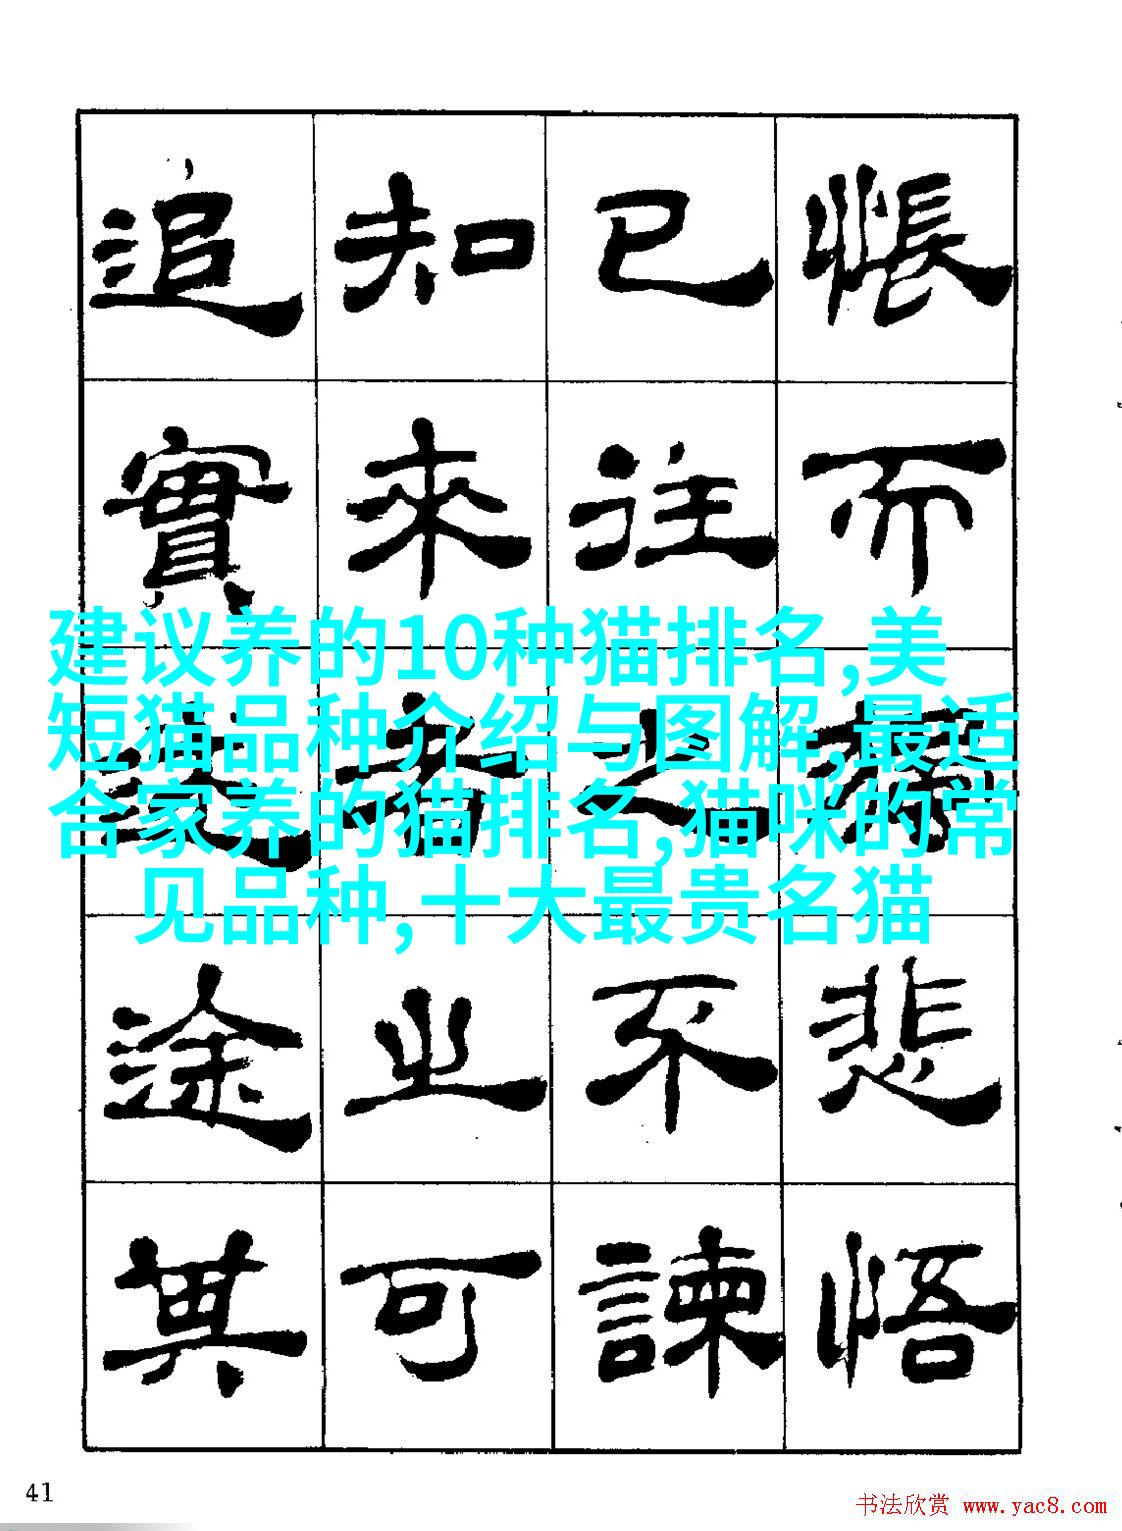 悵而悲悟
已往之不諫
知來者之可
追實途其
建议养的10种猫排名,美
短猫品种介绍与图解,最适
合家养的猫排名,猫咪的常
见品种,十大最贵名猫
41
书法欣赏 www.yac8.com